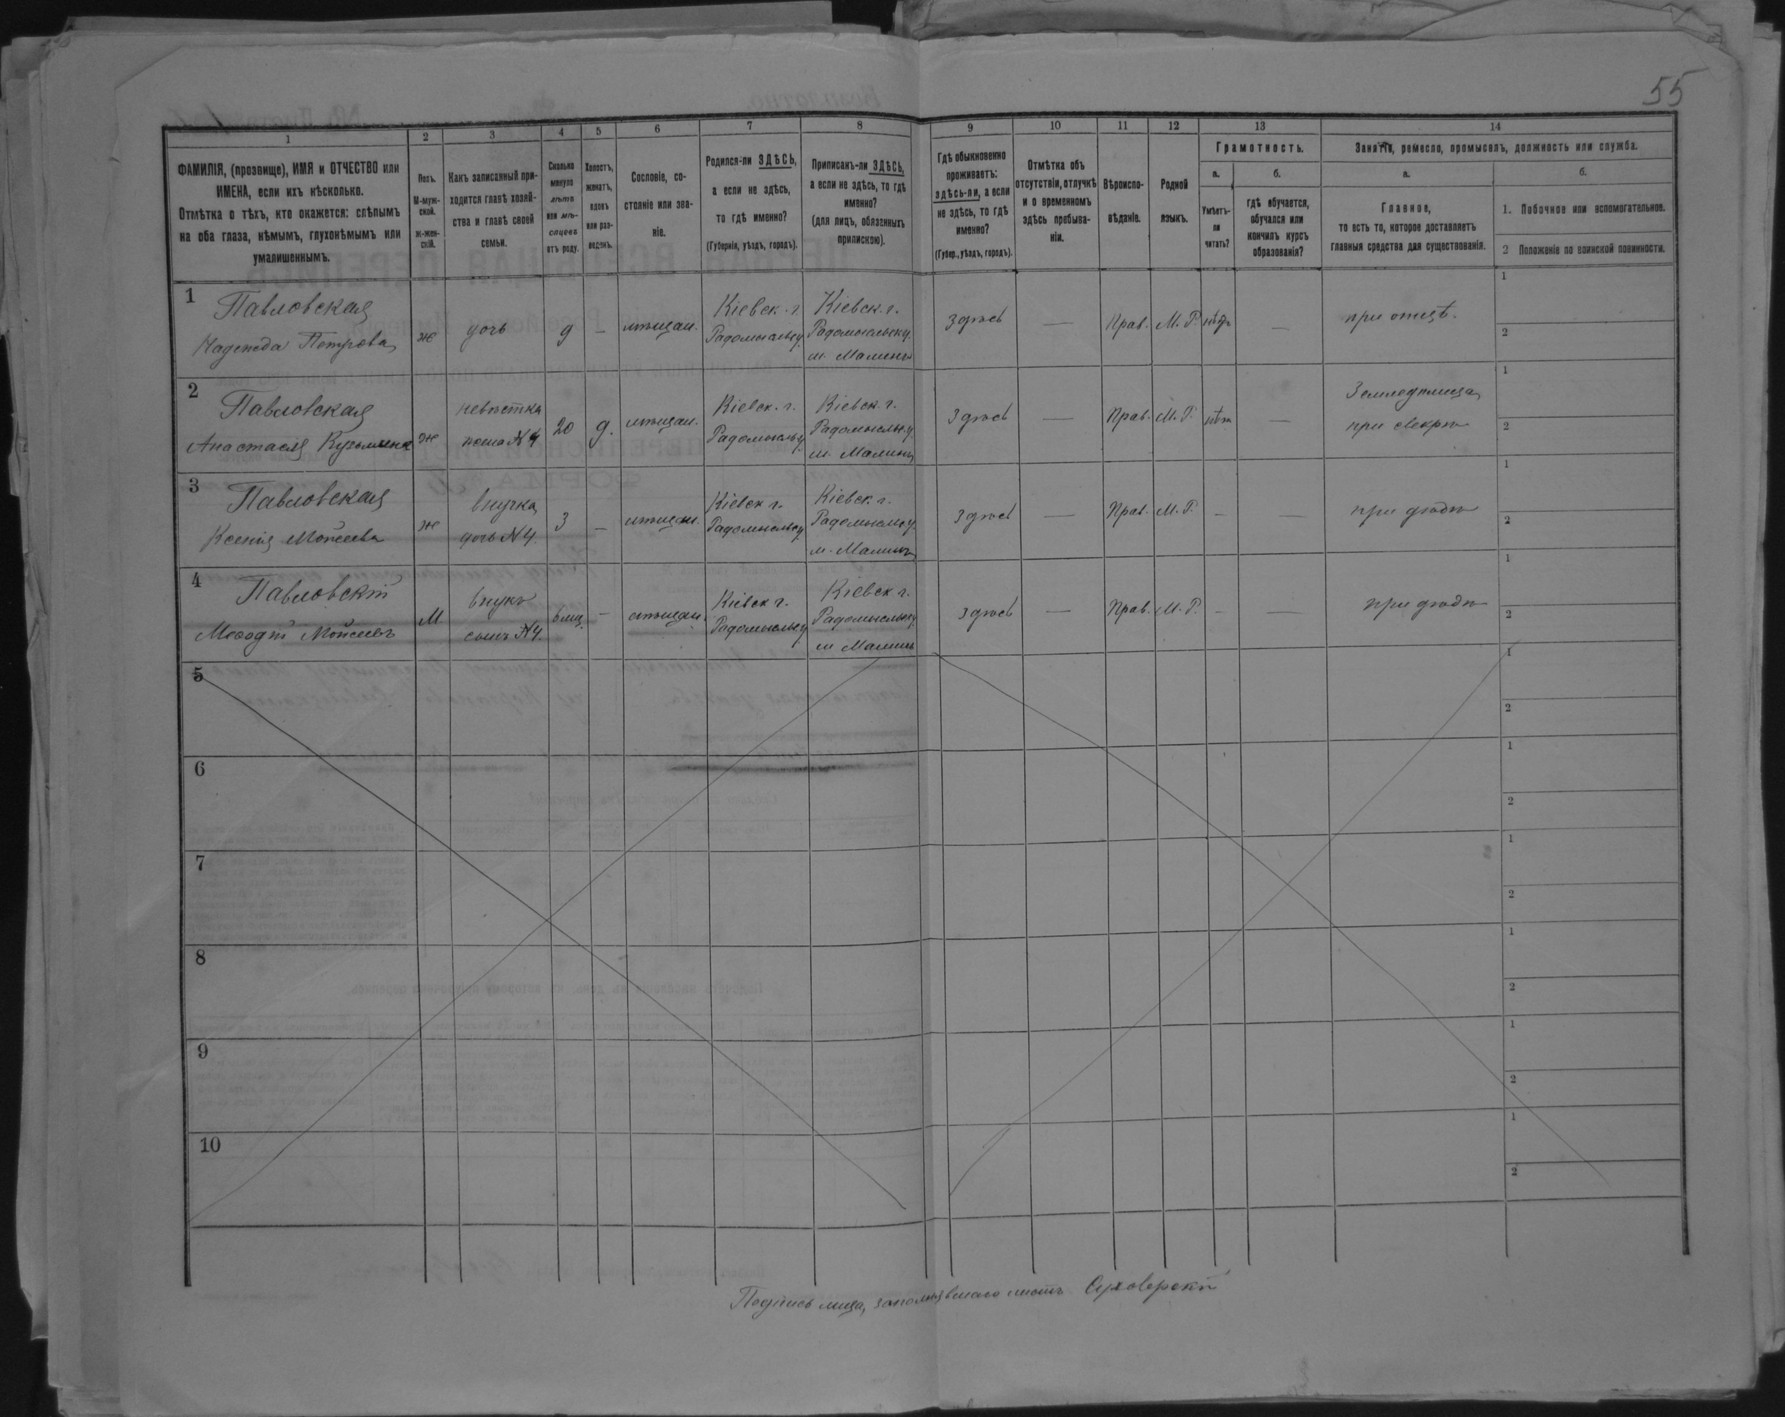 55
1 2 3 4 5 6 7 8 9 10 11 12 13 14
ФАМИЛІЯ, (прозвище), ИМЯ и ОТЧЕСТВО или
ИМЕНА, если ихъ нѣсколько.
Отмѣтка о тѣхъ, кто окажется: слѣпымъ
на оба глаза, нѣмымъ, глухонѣмымъ или
умалишеннымъ.
Полъ.
М-муж-
ской.
Ж-жен-
скій.
Какъ записанный при-
ходится главѣ хозяй-
ства и главѣ своей
семьи.
Сколько
минуло
лѣтъ
или мѣ-
сяцевъ
отъ роду.
Холостъ,
женатъ,
вдовъ
или раз-
веденъ.
Сословіе, со-
стояніе или зва-
ніе.
Родился-ли ЗДѢСЬ,
а если не здѣсь,
то гдѣ именно?
(Губернія, уѣздъ, городъ).
Приписанъ-ли ЗДѢСЬ,
а если не здѣсь, то гдѣ
именно?
(для лицъ, обязанныхъ
припискою).
Гдѣ обыкновенно
проживаетъ:
здѣсь-ли, а если
не здѣсь, то гдѣ
именно?
(Губер., уѣздъ, городъ).
Отмѣтка объ
отсутствіи, отлучкѣ
и о временномъ
здѣсь пребыва-
ніи.
Вѣроиспо-
вѣданіе.
Родной
языкъ.
Грамотность.
а.
Умѣетъ-
ли
читать?
б.
гдѣ обучается,
обучался или
кончилъ курсъ
образованія?
Занятіе, ремесло, промыселъ, должность или служба.
а.
Главное,
то есть то, которое доставляетъ
главныя средства для существованія.
б.
1. Побочное или вспомогательное.
2 Положеніе по воинской повинности.
1 Павловская
Надежда Петрова
ж дочь 9 — мѣщан.
Кіевск. г.
Радомысльск у.
Кіевск. г.
Радомысльск у.
м. Малинъ
здѣсь — Прав. М. Р. нѣтъ — при отцѣ.
1
2
2 Павловская
Анастасія Кузьмина
ж невѣстка
жена №4
20 д. мѣщан.
Кіевск. г.
Радомысльск у.
Кіевск. г.
Радомысльск у.
м. Малинъ
здѣсь — Прав. М. Р. нѣтъ —
Земледѣлица
при свекрѣ
1
2
3 Павловская
Ксенія Мойсеева
ж внучка
дочь №4
3 — мѣщан.
Кіевск г.
Радомысльск у.
Кіевск. г.
Радомысльск у.
м. Малинъ
здѣсь — Прав. М. Р. — — при дѣдѣ
1
2
4 Павловскій
Меѳодій Мойсеевъ
М внукъ
сынъ №4
6 мц. — мѣщан.
Кіевск г.
Радомысльск у.
Кіевск г.
Радомысльск у.
м Малинъ
здѣсь — Прав. М. Р. — — при дѣдѣ
1
2
5
1
2
6
1
2
7
1
2
8
1
2
9
1
2
10
1
2
Подпись лица, заполнявшаго листъ Суховерскій